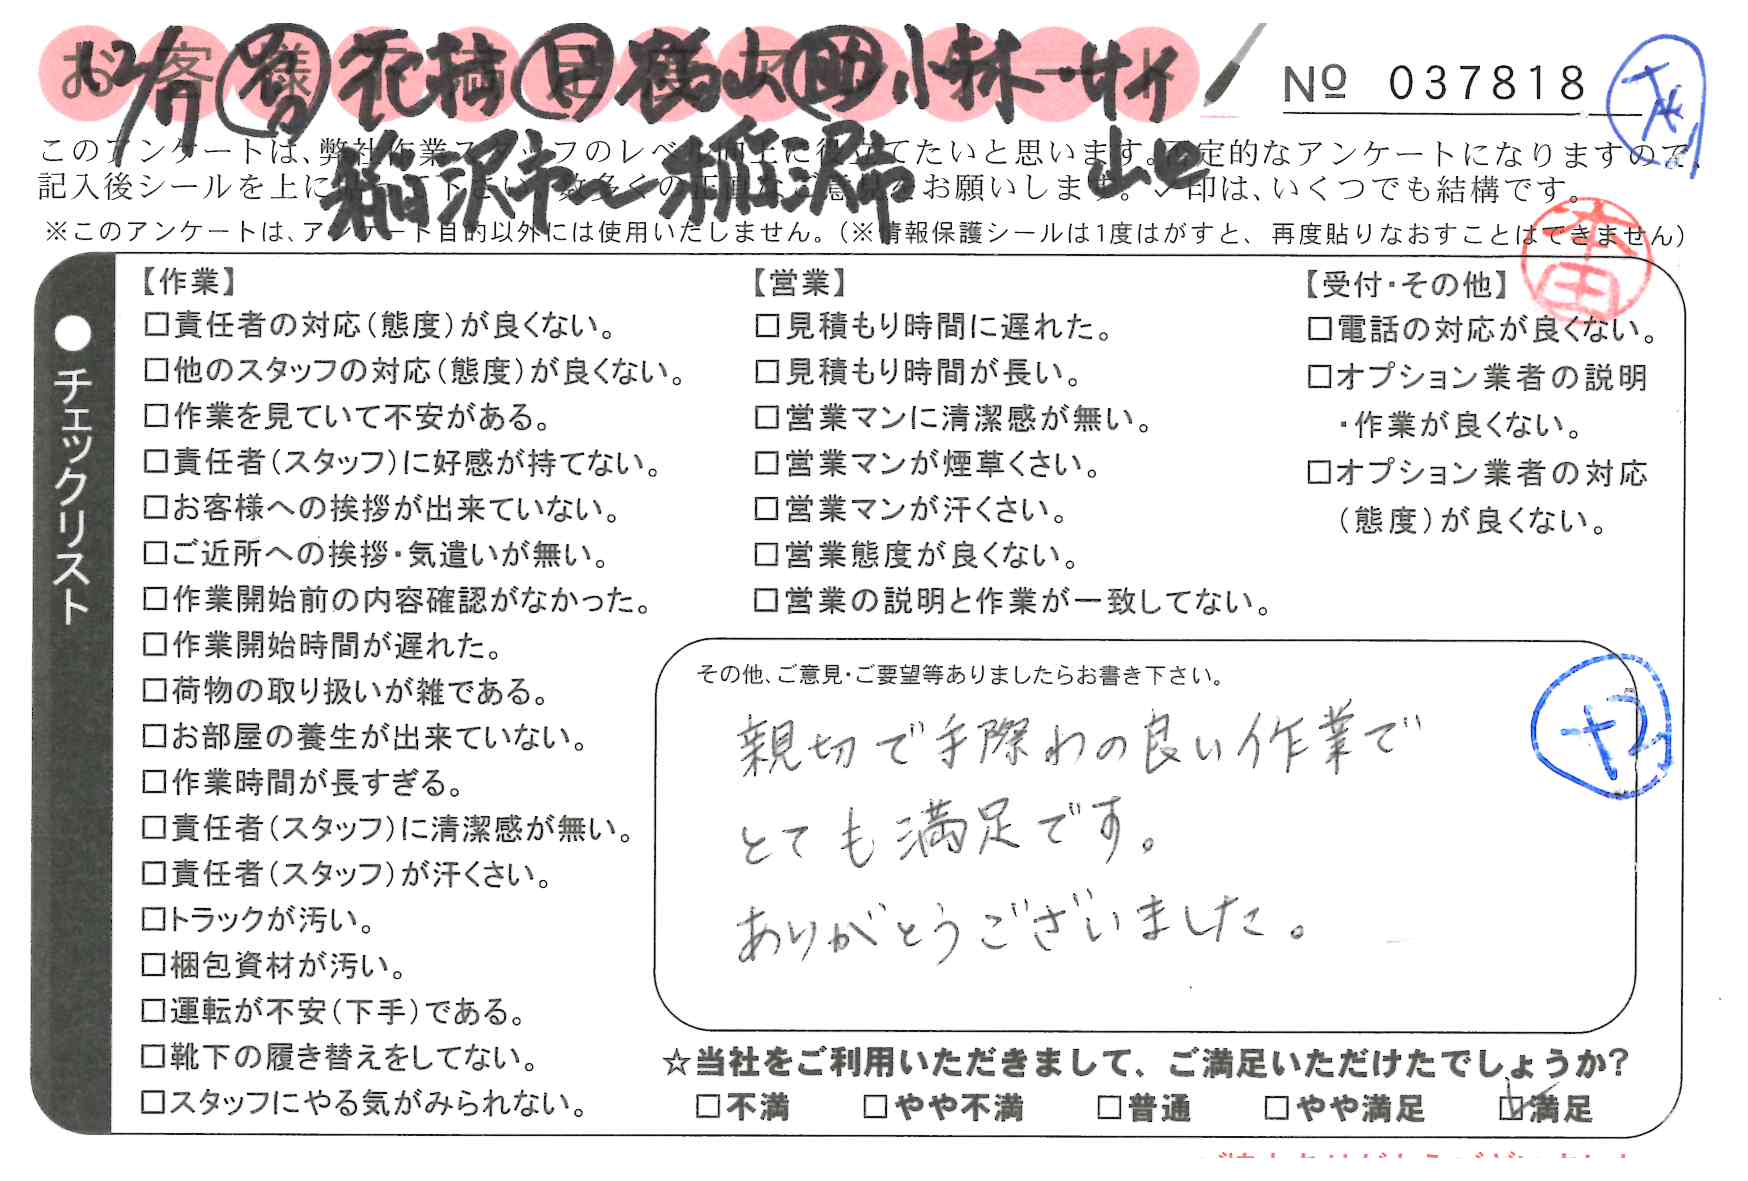 12/17
№ 037818
稲沢市〜稲沢市
このアンケートは、弊社作業スタッフのレベル向上に役立てたいと思います。否定的なアンケートになりますので、
記入後シールを上に貼って下さい。数多くの正直なご意見をお願いします。✓印は、いくつでも結構です。
※このアンケートは、アンケート目的以外には使用いたしません。（※情報保護シールは1度はがすと、再度貼りなおすことはできません）
本田
●チェックリスト
【作業】
□責任者の対応（態度）が良くない。
□他のスタッフの対応（態度）が良くない。
□作業を見ていて不安がある。
□責任者（スタッフ）に好感が持てない。
□お客様への挨拶が出来ていない。
□ご近所への挨拶・気遣いが無い。
□作業開始前の内容確認がなかった。
□作業開始時間が遅れた。
□荷物の取り扱いが雑である。
□お部屋の養生が出来ていない。
□作業時間が長すぎる。
□責任者（スタッフ）に清潔感が無い。
□責任者（スタッフ）が汗くさい。
□トラックが汚い。
□梱包資材が汚い。
□運転が不安（下手）である。
□靴下の履き替えをしてない。
□スタッフにやる気がみられない。
【営業】
□見積もり時間に遅れた。
□見積もり時間が長い。
□営業マンに清潔感が無い。
□営業マンが煙草くさい。
□営業マンが汗くさい。
□営業態度が良くない。
□営業の説明と作業が一致してない。
【受付・その他】
□電話の対応が良くない。
□オプション業者の説明
・作業が良くない。
□オプション業者の対応
（態度）が良くない。
その他、ご意見・ご要望等ありましたらお書き下さい。
親切で手際わの良い作業で
とても満足です。
ありがとうございました。
☆当社をご利用いただきまして、ご満足いただけたでしょうか?
□不満 □やや不満 □普通 □やや満足 ☑満足